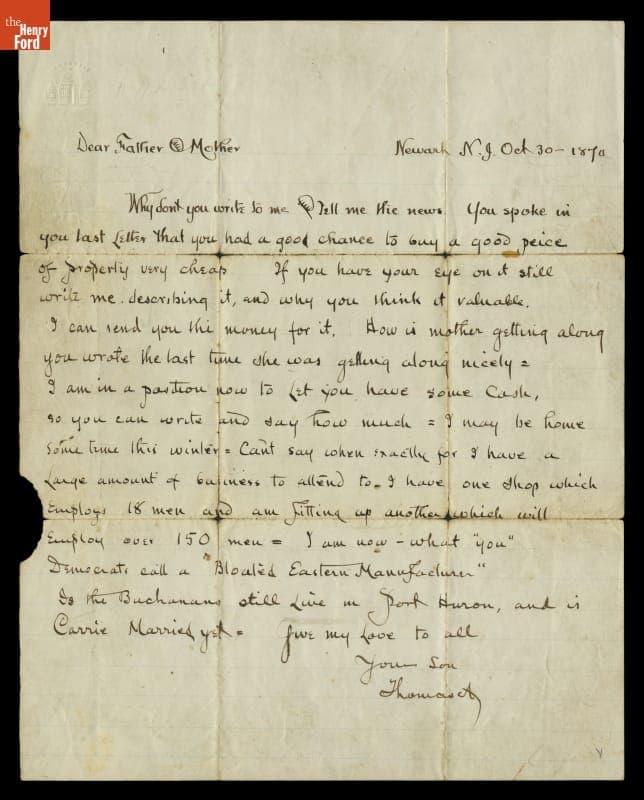 the
Henry
Ford
Dear Father & Mother Newark N.J. Oct 30 - 1870
Why dont you write to me & tell me the news. You spoke in
you last Letter that you had a good chance to buy a good peice
of property very cheap If you have your eye on it still
write me. describing it, and why you think it valuable.
I can send you the money for it. How is mother getting along
you wrote the last time she was getting along nicely =
I am in a position now to Let you have some Cash,
so you can write and say how much = I may be home
some time this winter = Cant say when exactly for I have a
Large amount of business to attend to. I have one shop which
Employs 18 men and am fitting up another which will
Employ over 150 men = I am now - what "you"
Democrats call a "Bloated Eastern Manufacturer"
Is the Buchanans still Live in Port Huron, and is
Carrie Married yet = Give my Love to all
Your Son
Thomas A